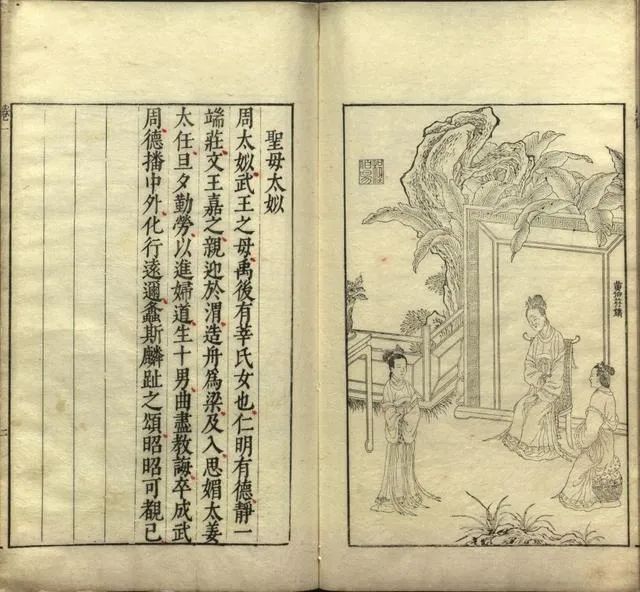 黃伯符鐫
聖母太姒
周太姒武王之母禹後有莘氏女也仁明有德靜一
端莊文王嘉之親迎於渭造舟爲梁及入思媚太姜
太任旦夕勤勞以進婦道生十男曲盡教誨卒成武
周德播中外化行遠邇螽斯麟趾之頌昭昭可觀已
卷一